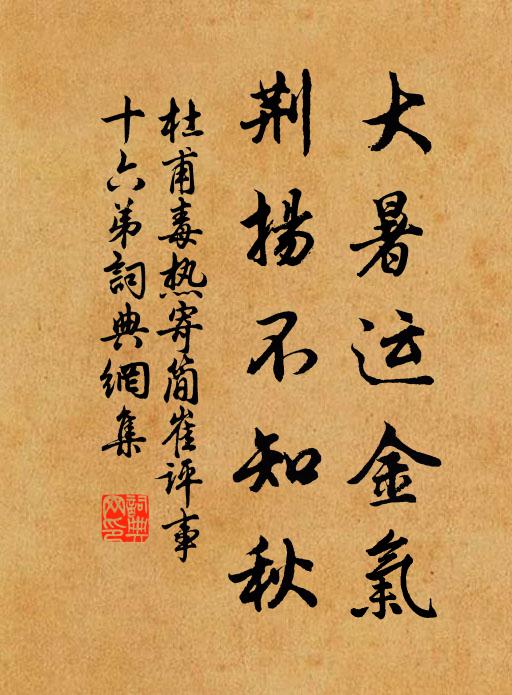 大暑运金氣
荆揚不知秋
杜甫毒热寄简崔评事
十六弟詞典網集
詞典网印